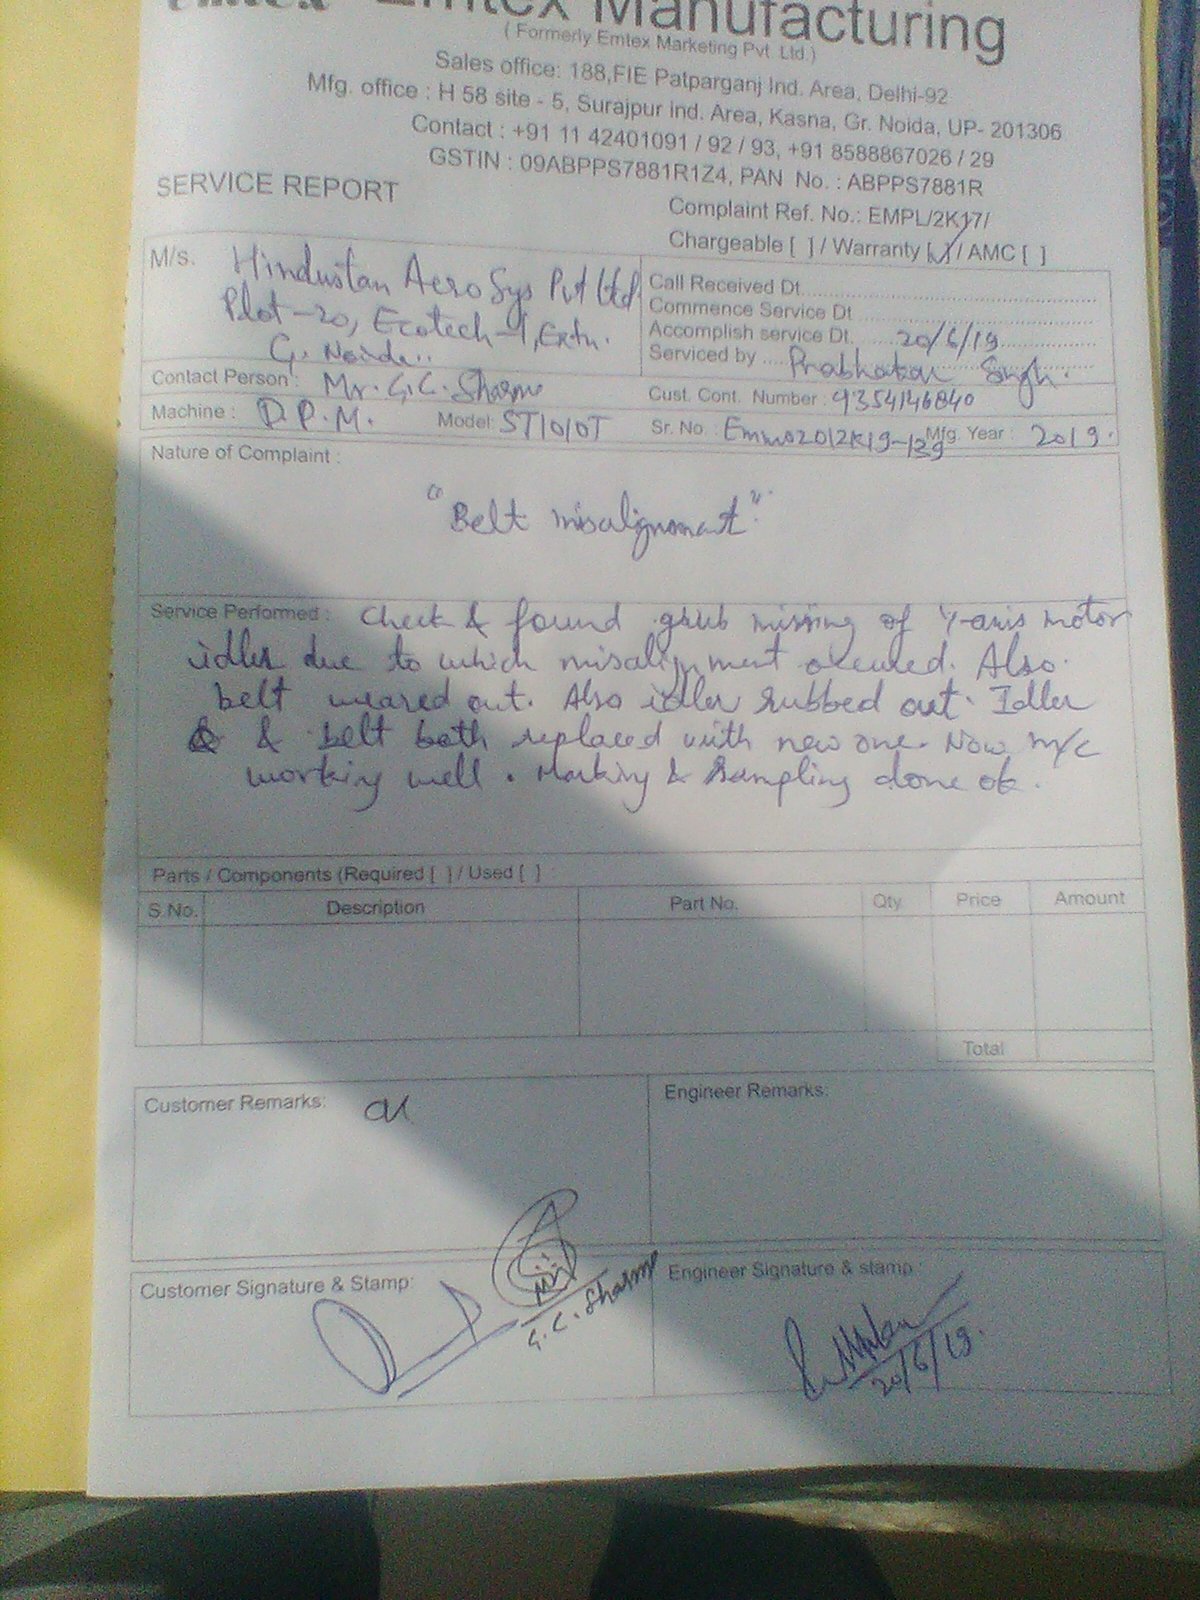 Emtex Manufacturing
( Formerly Emtex Marketing Pvt. Ltd.)
Sales office: 188,FIE Patparganj Ind. Area, Delhi-92
Mfg. office : H 58 site - 5, Surajpur Ind. Area, Kasna, Gr. Noida, UP- 201306
Contact : +91 11 42401091 / 92 / 93, +91 8588867026 / 29
GSTIN : 09ABPPS7881R1Z4, PAN No. : ABPPS7881R
SERVICE REPORT
Complaint Ref. No.: EMPL/2K17/
Chargeable [ ] / Warranty [✓] / AMC [ ]
M/s. Hindustan Aero Sys Pvt Ltd
Plot-20, Ecotech-1, Extn.
G. Noida..
Call Received Dt
Commence Service Dt
Accomplish service Dt. 20/6/19
Serviced by Prabhakar Singh.
Contact Person : Mr. G.C. Sharma
Cust. Cont. Number : 9354146840
Machine : D.P.M. Model: ST1010T Sr. No. : Mfg. Year : 2019.
Nature of Complaint :
"Belt misalignment".
Service Performed : Check & found grub missing of Y-axis motor
idler due to which misalignment occured. Also
belt weared out. Also idler rubbed out. Idler
& belt both replaced with new one. Now m/c
working well. Marking & Sampling done ok.
Parts / Components (Required [ ] / Used [ ] :
S.No. Description Part No. Qty Price Amount
Total
Customer Remarks: ok
Engineer Remarks:
Customer Signature & Stamp:
G.C. Sharma
Engineer Signature & stamp :
20/6/19.